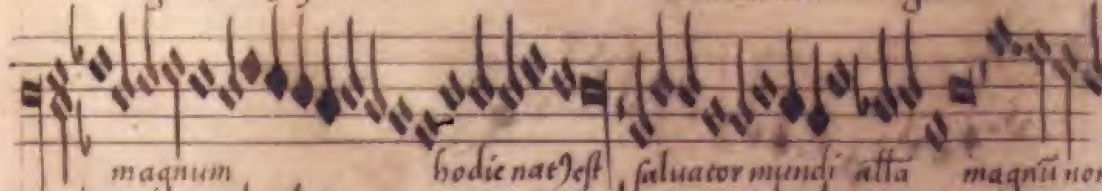 magnum hodie natꝰ est saluator mundi allā magnū nom